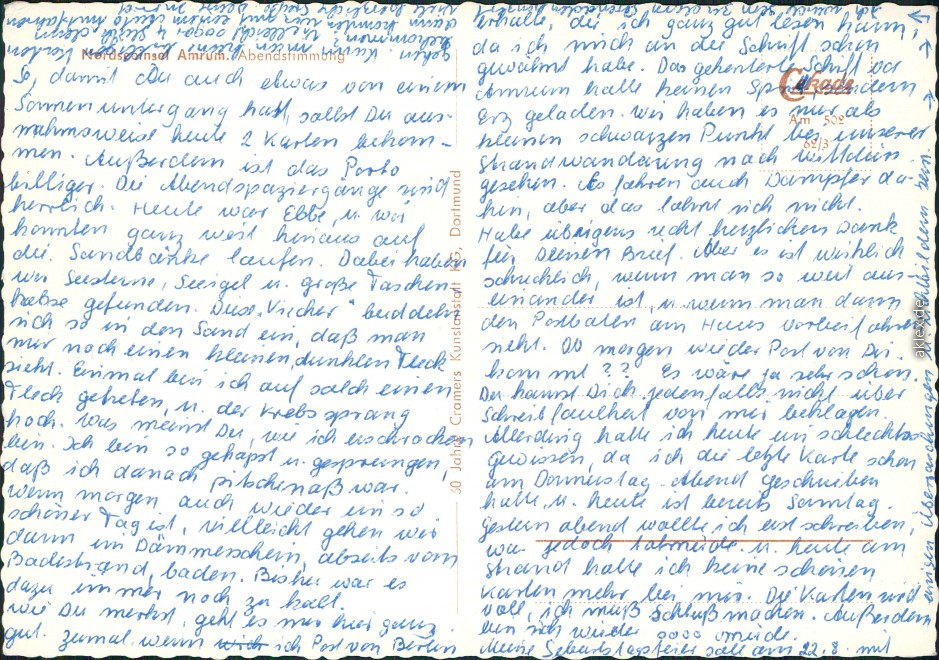 Nordseeinsel Amrum. Abendstimmung
So, damit Du auch etwas von einem
Sonnenuntergang hast, sollst Du aus-
nahmsweise heute 2 Karten bekom-
men. Außerdem ist das Porto
billiger. Die Abendspaziergänge sind
herrlich. Heute war Ebbe u. wir
konnten ganz weit hinaus auf
die Sandbänke laufen. Dabei haben
wir Seesterne, Seeigel u. große Taschen-
krebse gefunden. Diese "Viecher" buddeln
sich so in den Sand ein, daß man
nur noch einen kleinen dunklen Fleck
sieht. Einmal bin ich auf solch einen
Fleck getreten, u. der Krebs sprang
hoch. Was meinst Du, wie ich erschrocken
bin. Ich bin so gehopst u. gesprungen,
daß ich danach pitschenaß war.
Wenn morgen auch wieder ein so
schöner Tag ist, vielleicht gehen wir
dann im Dämmerschein, abseits vom
Badestrand, baden. Bisher war es
dazu immer noch zu kalt.
Wie Du merkst, geht es mir hier ganz
gut. zumal wenn ich Post von Berlin
60 Jahre Cramers Kunstanstalt KG, Dortmund
Cekade
Am 502
62/3
erhalte, die ich ganz gut lesen kann,
da ich mich an die Schrift schon
gewöhnt habe. Das gekenterte Schiff vor
Amrum hatte keinen sondern
Erz geladen. Wir haben es nur als
kleinen schwarzen Punkt bei unserer
Strandwanderung nach Wittdün
gesehen. Es fahren auch Dampfer da-
hin, aber das lohnt sich nicht.
Habe übrigens recht herzlichen Dank
für Deinen Brief. Aber es ist wirklich
schrecklich, wenn man so weit aus-
einander ist, u. wenn man dann
den Postboten am Haus vorbeifahren
sieht. Ob morgen wieder Post von Dir
kommt?? Es wäre ja sehr schön.
Du kannst Dich jedenfalls nicht über
Schreibfaulheit von mir beklagen.
Allerdings hatte ich heute ein schlechtes
Gewissen, da ich die letzte Karte schon
am Donnerstag-Abend geschrieben
hatte u. heute ist bereits Sonntag.
Gestern abend wollte ich erst schreiben,
war jedoch todmüde. u. heute am
Strand hatte ich keine schönen
Karten mehr bei mir. Die Karten wird
voll, ich muß Schluß machen. Außerdem
bin ich wieder sooo müde.
Meine Geburtstagsfeier soll am 22.8. mit
einigen Überraschungen u. Lichtbildern sein.
aklex.de